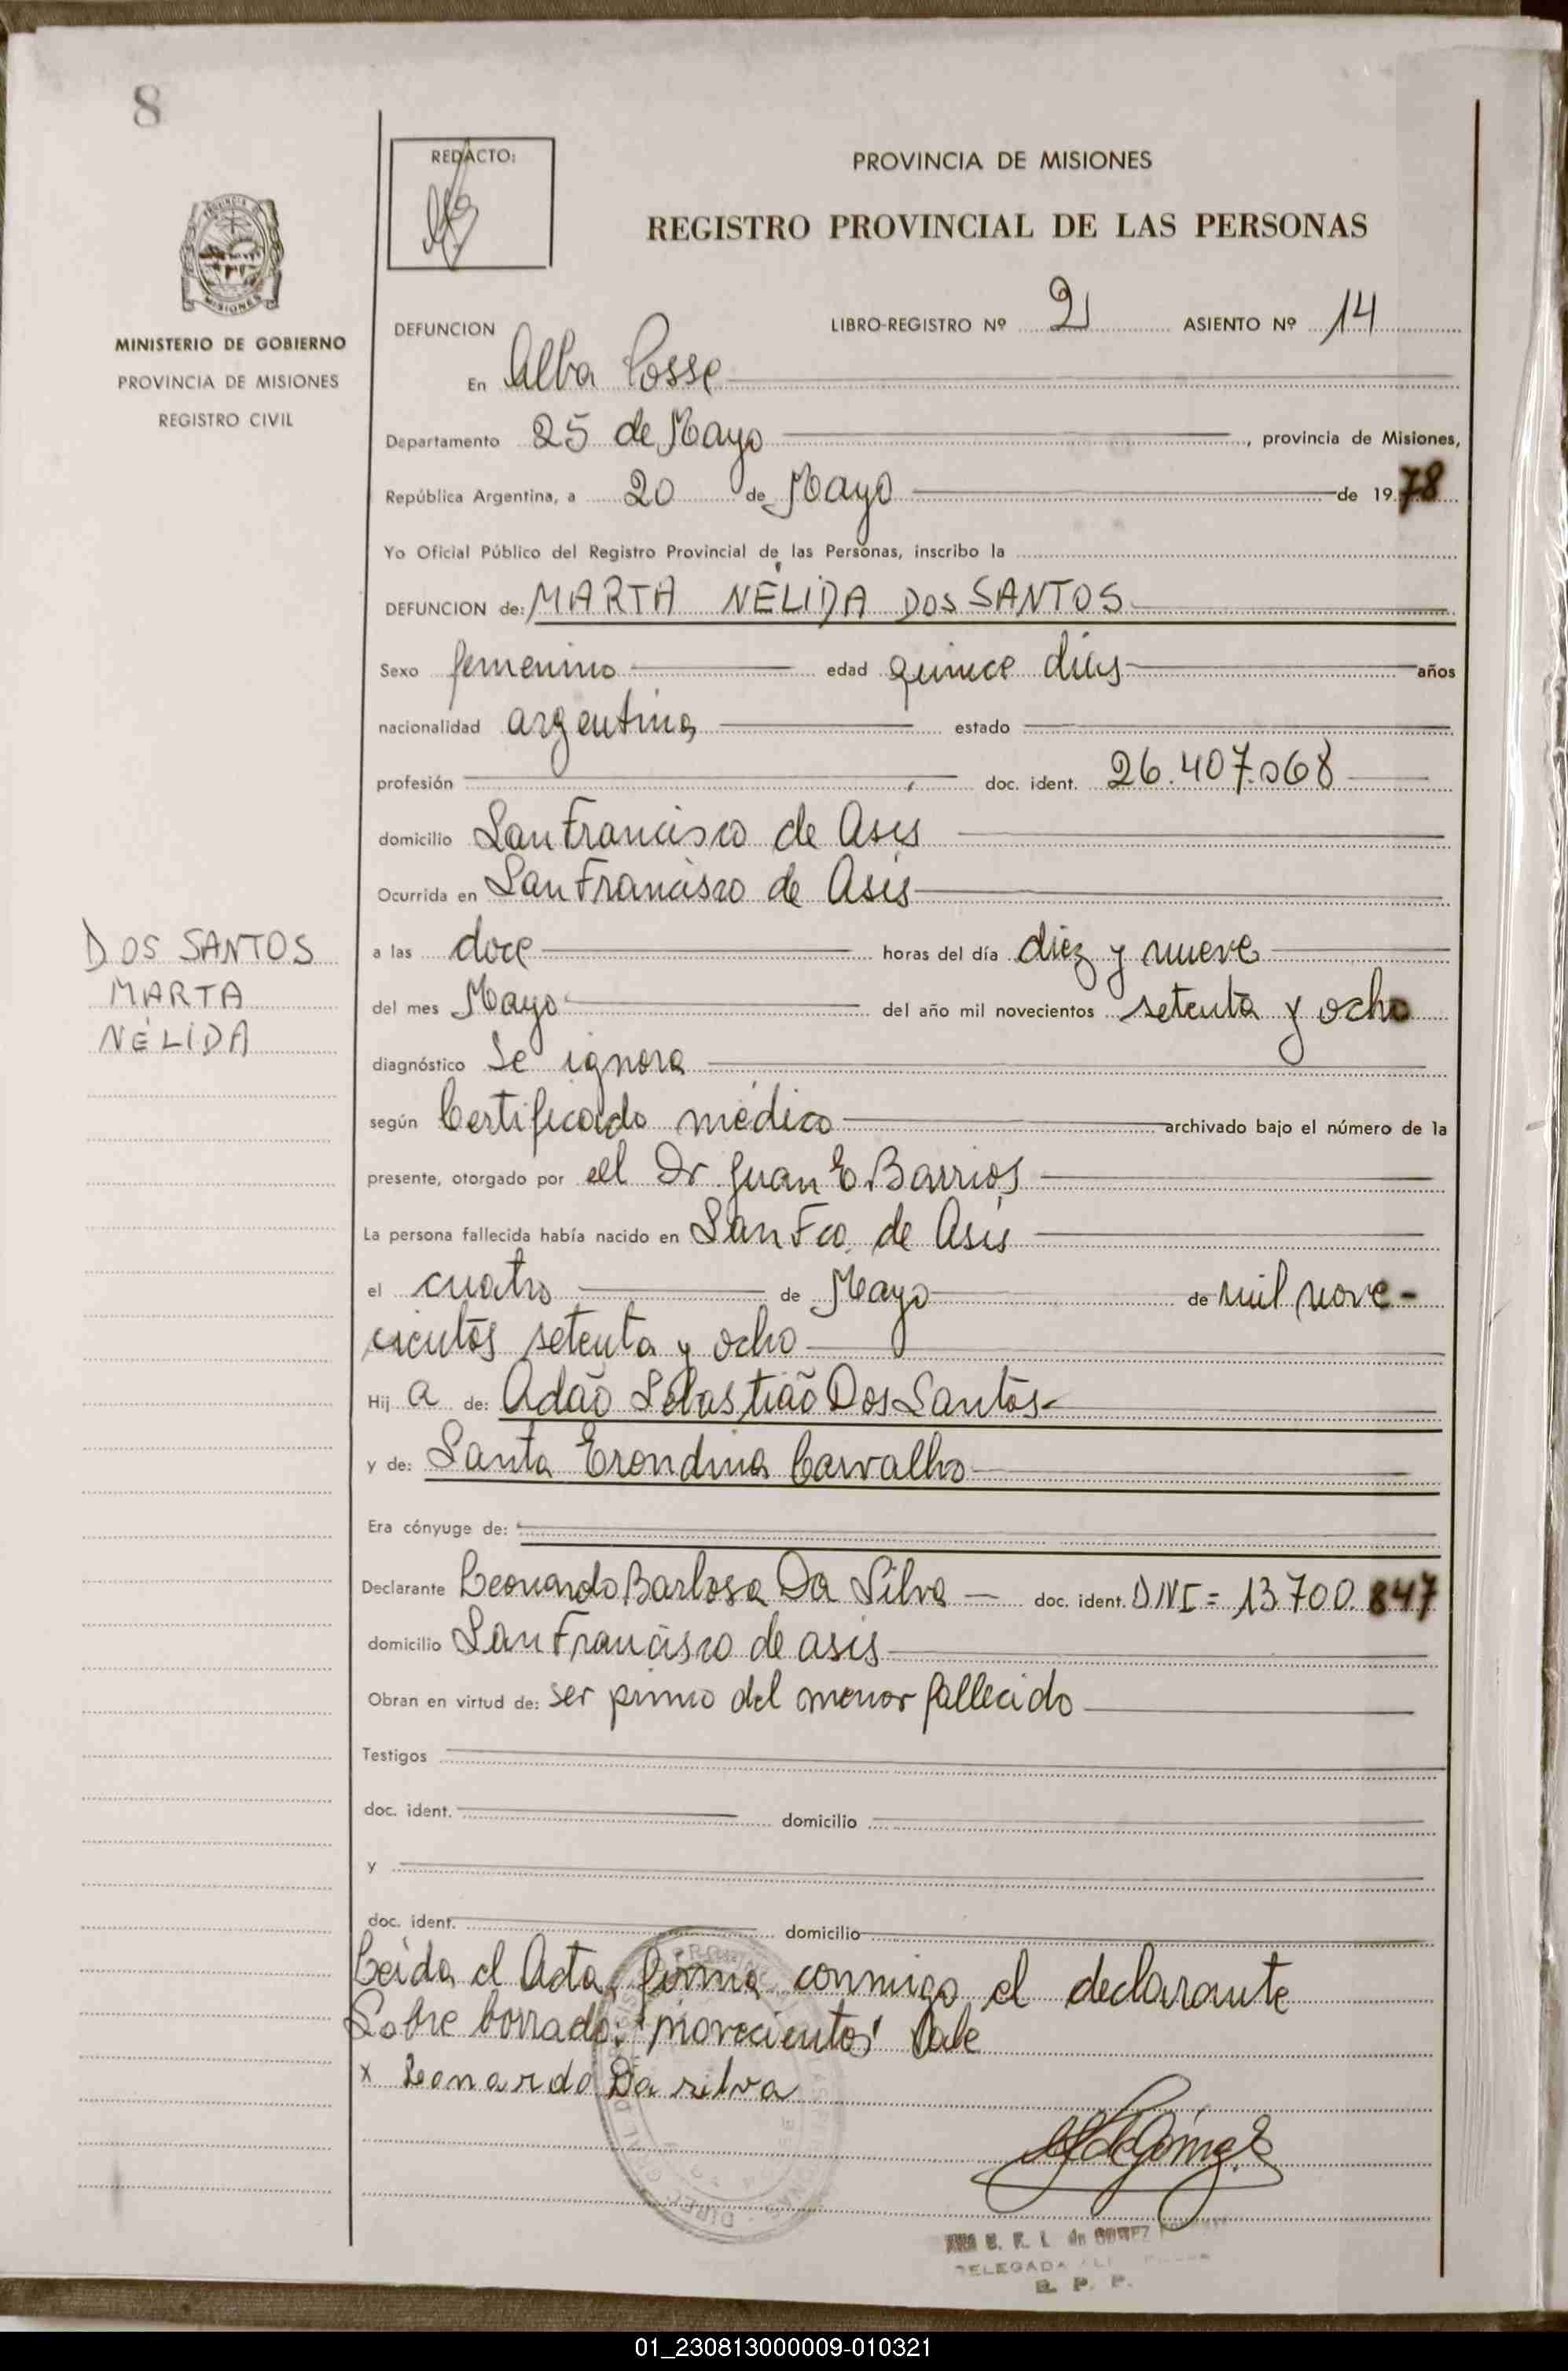 8
REDACTO:
PROVINCIA DE MISIONES
REGISTRO PROVINCIAL DE LAS PERSONAS
MISIONES
MINISTERIO DE GOBIERNO
PROVINCIA DE MISIONES
REGISTRO CIVIL
DEFUNCION LIBRO-REGISTRO Nº 2 ASIENTO Nº 14
En Alba Posse
Departamento 25 de Mayo, provincia de Misiones,
República Argentina, a 20 de Mayo de 1978
Yo Oficial Público del Registro Provincial de las Personas, inscribo la
DEFUNCION de: MARTA NÉLIDA DOS SANTOS
Sexo femenino edad quince días años
nacionalidad argentina estado
profesión doc. ident. 26.407.068
domicilio San Francisco de Asis
Ocurrida en San Francisco de Asís
DOS SANTOS
MARTA
NÉLIDA
a las doce horas del día diez y nueve
del mes Mayo del año mil novecientos setenta y ocho
diagnóstico Se ignora
según Certificado médico archivado bajo el número de la
presente, otorgado por el Dr Juan E. Barrios
La persona fallecida había nacido en San Fco. de Asís
el cuatro de Mayo de mil nove-
cientos setenta y ocho
Hij a de: Adão Sebastião Dos Santos
y de: Santa Erondina Carvalho
Era cónyuge de:
Declarante Leonardo Barbosa Da Silva doc. ident. DNI = 13.700.847
domicilio San Francisco de asis
Obran en virtud de: ser primo del menor fallecido
Testigos
doc. ident. domicilio
y
doc. ident. domicilio
Leída el Acta, firma conmigo el declarante
Sobre borrado: "novecientos" Vale
x Leonardo Da silva
de Gómez
de GOMEZ
DELEGADA
R. P. P.
01_230813000009-010321